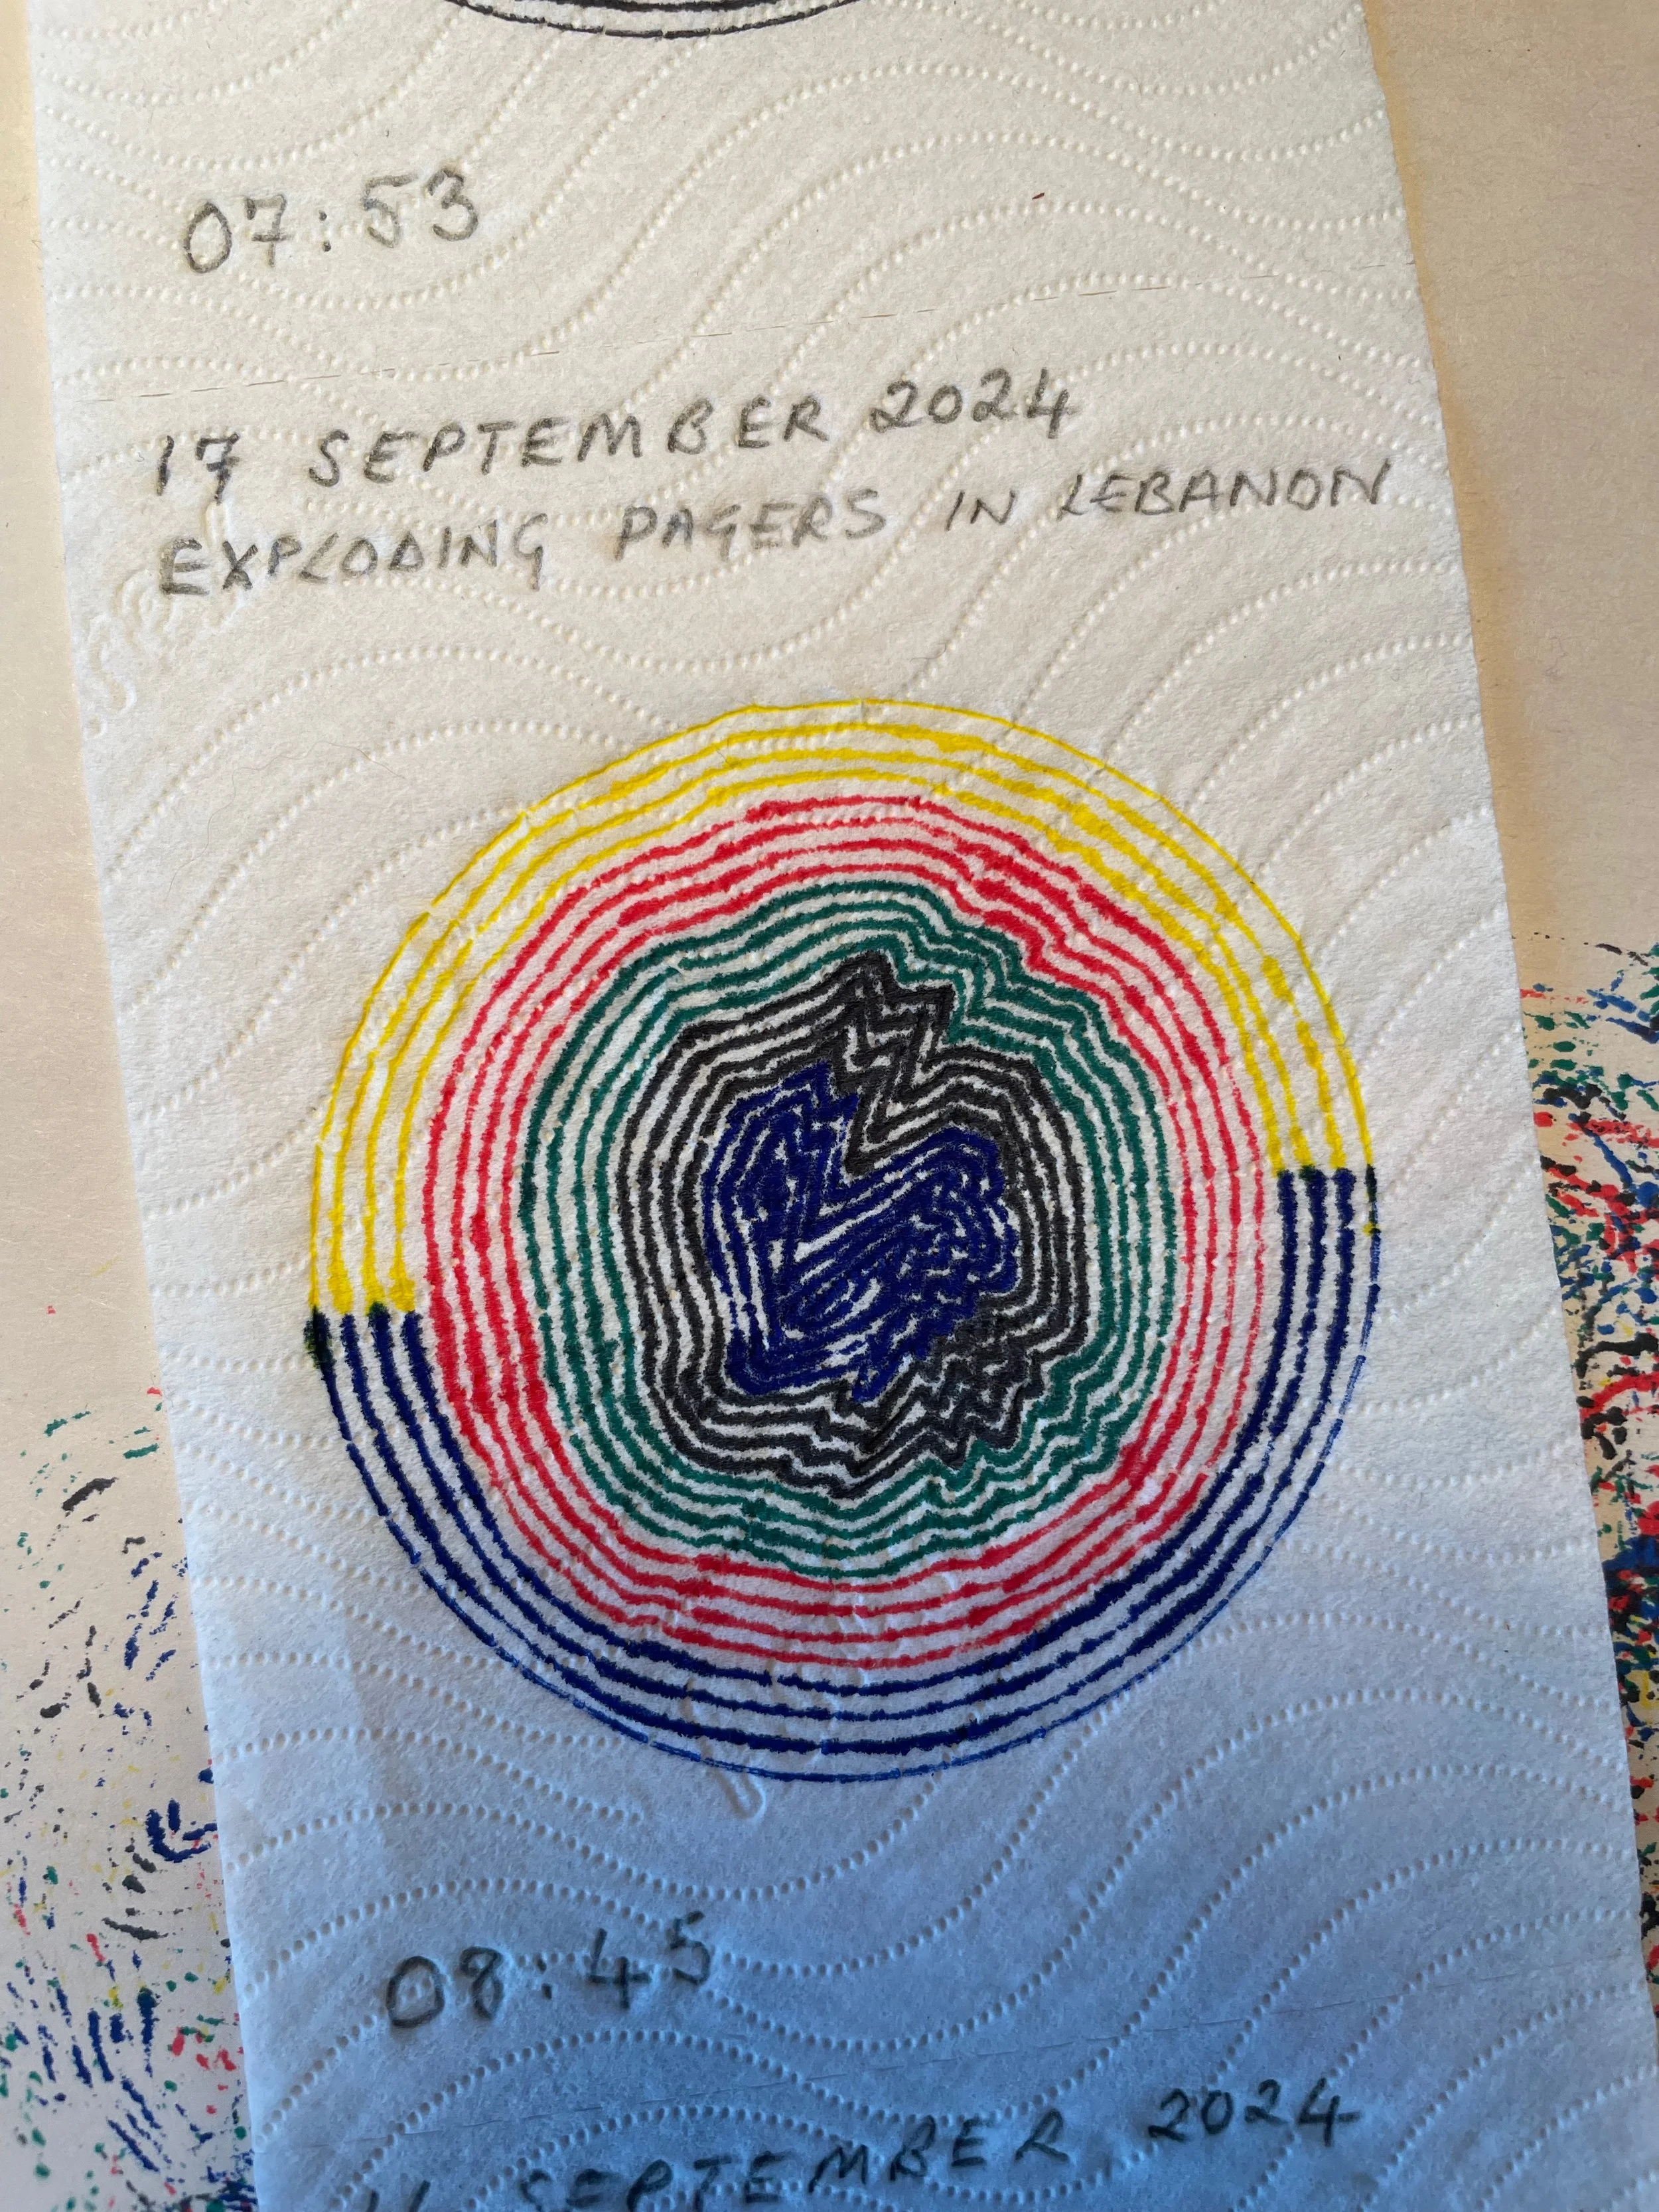 07:53
17 SEPTEMBER 2024
EXPLODING PAGERS IN LEBANON
08:45
SEPTEMBER 2024